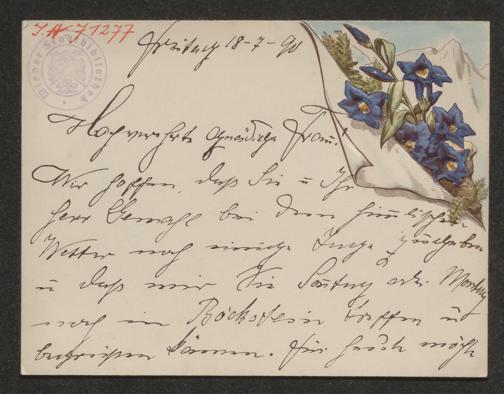 I.N. 71277
Wiener Stadtbibliothek
Freitag 18-7-90
Hochverehrte Gnädige Frau!
Wir hoffen, daß Sie u Ihr
Herr Gemahl bei dem himmlischen
Wetter noch einige Tage zugeben
u daß wir Sie Sontag oder Montag
noch in Böckstein treffen u
begrüßen können. Für heute möchte